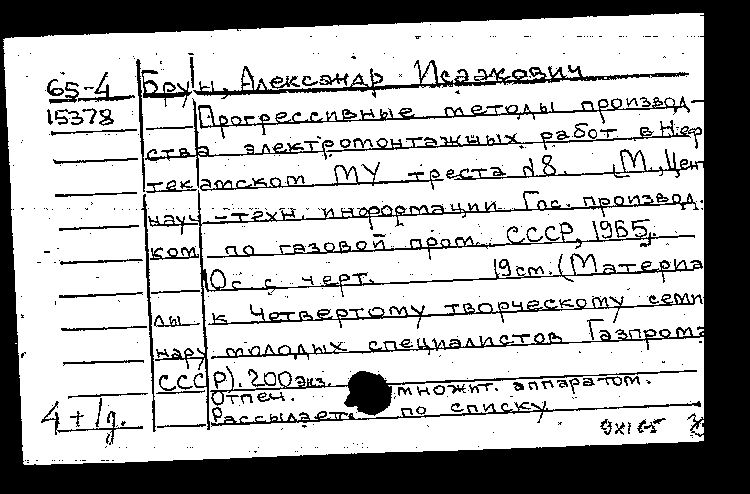 65-4 Брун, Александр Исаакович
15378 Прогрессивные методы производ-
ства электромонтажных работ в Нер
текамском МУ треста №8. [М., Цент
науч-техн. информации Гос. производ.
ком по газовой пром. СССР, 1965.
10с с черт. 19см. (Материа
лы к Четвертому творческому семи
нару молодых специалистов Газпрома
СССР). 200 экз.
Отпеч. множит. аппаратом.
4+1д. Рассылается по списку
9XI65